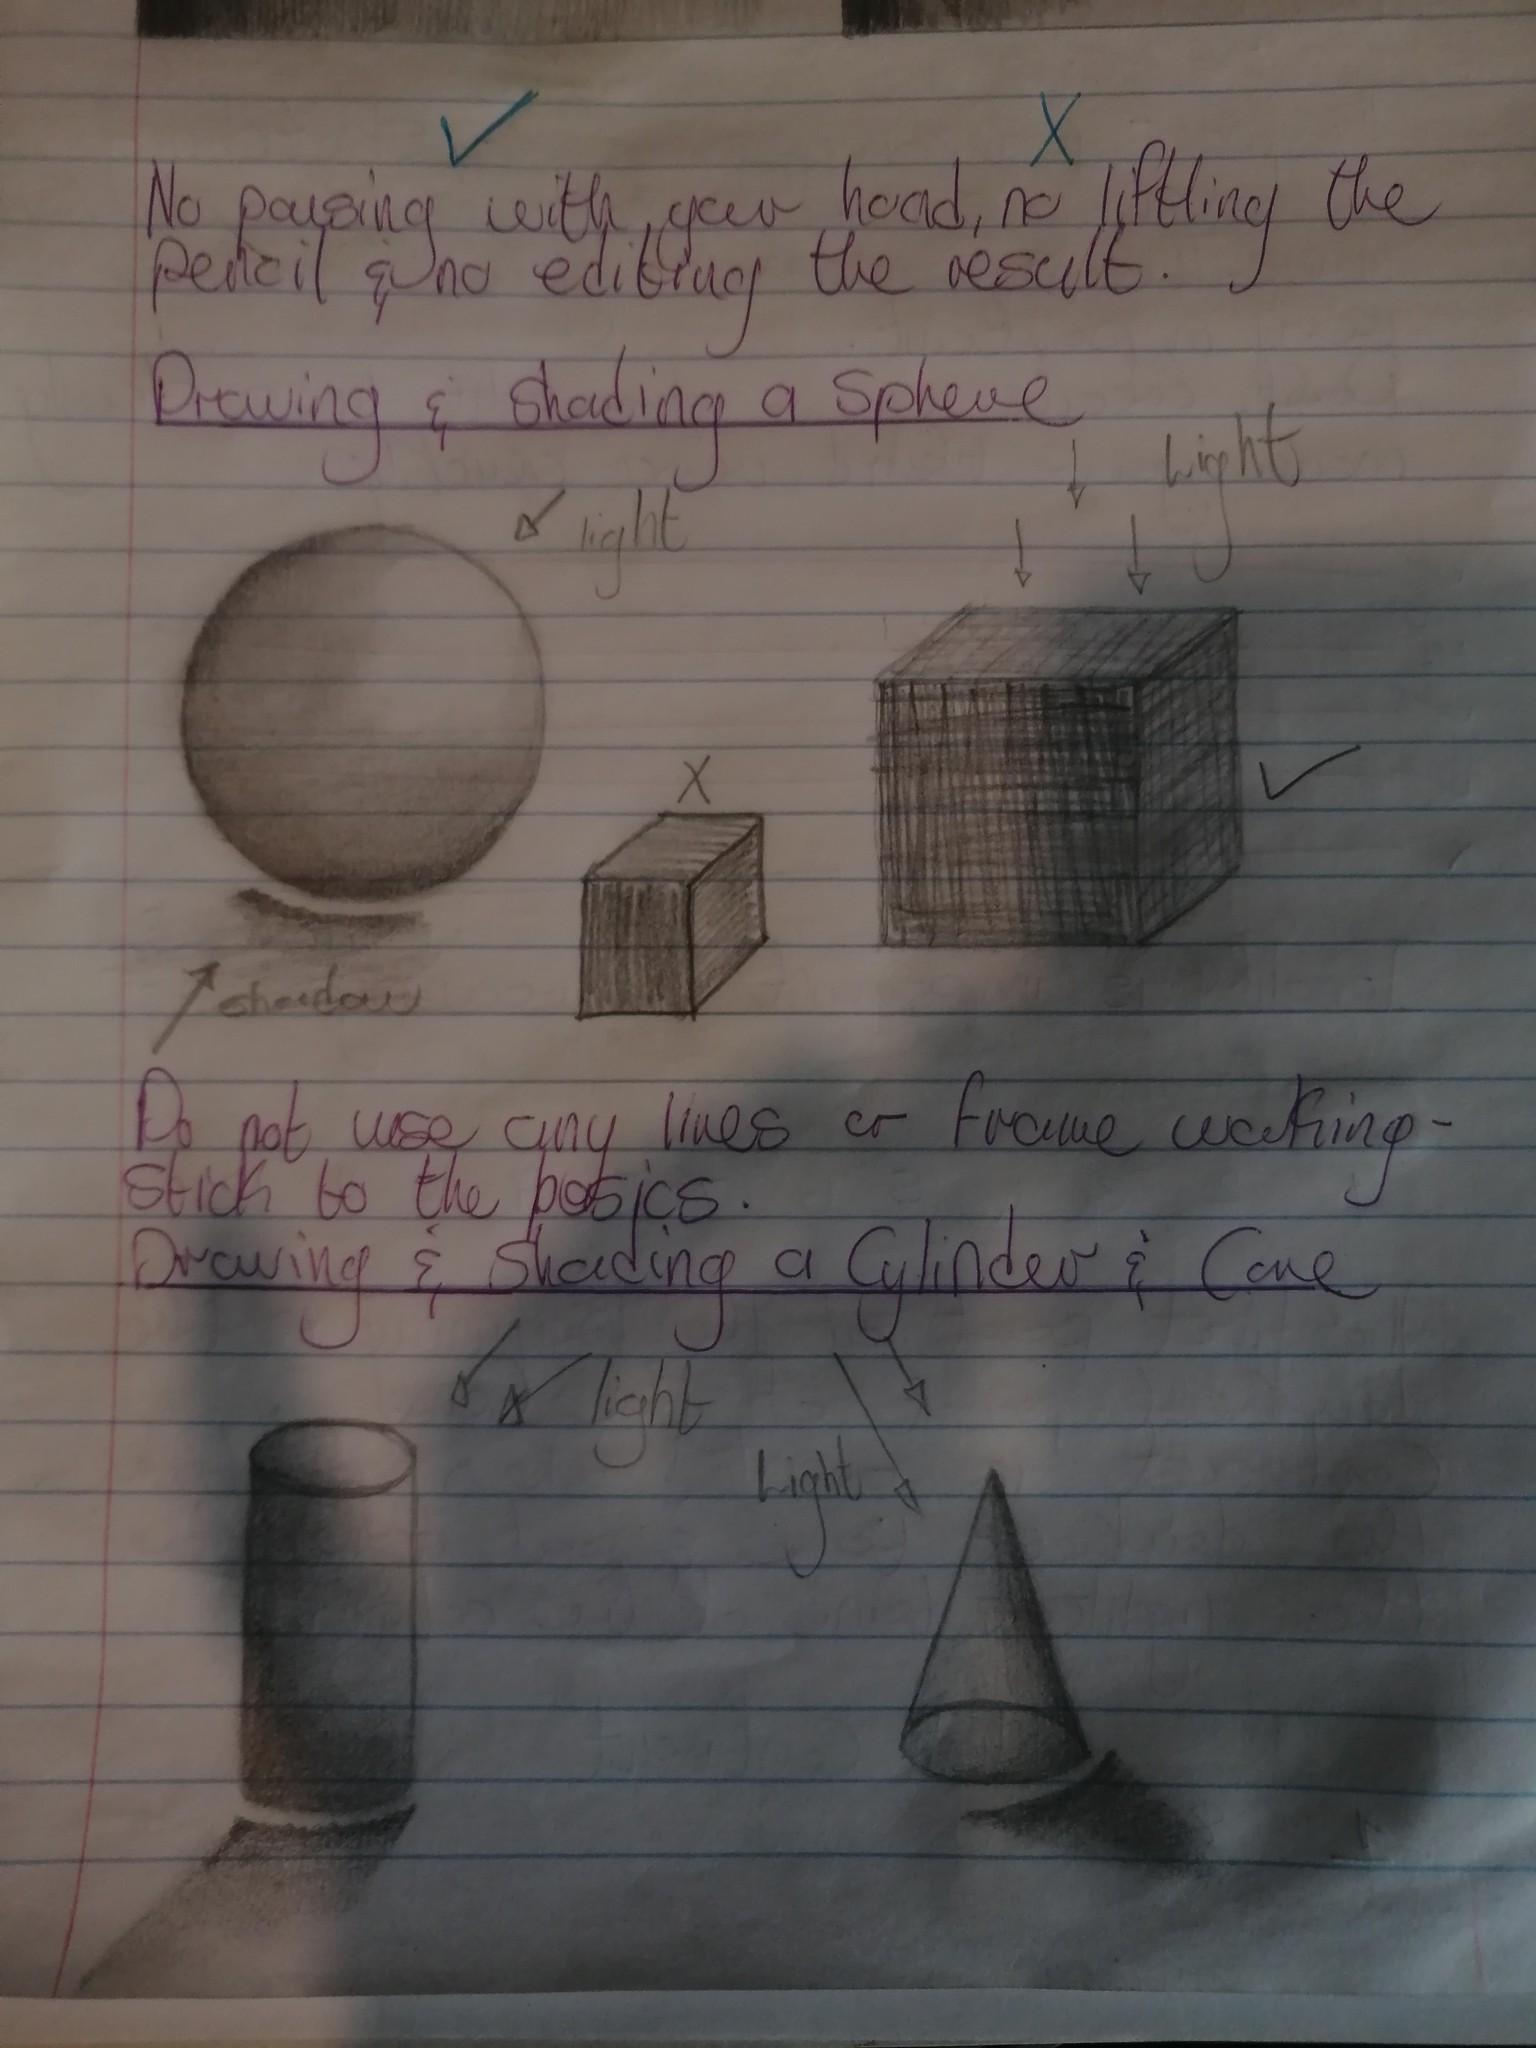 No pausing with your hand, no liftling the
pencil & no editing the result.
Drawing & Shading a Sphere
light
Light
X
shadow
Do not use any lines or frame working -
Stick to the basics.
Drawing & Shading a Cylinder & Cone
light
Light